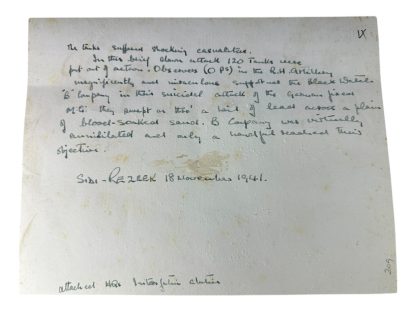 IX
the tanks suffered shocking casualties.
In this brief dawn attack 120 Tanks were
put out of action. Observers (O PS) in the R.H. Artillery
magnificently and miraculous support as the Black Watch
'B' Company in this suicidal attack of the German fixed
as they swept on thro' a hail of lead across a plain
of blood-soaked sand. B Company was virtually
annihilated and only a handful reached their
objective.
SIDI-REZEEK 18 November 1941.
attached HQs
209